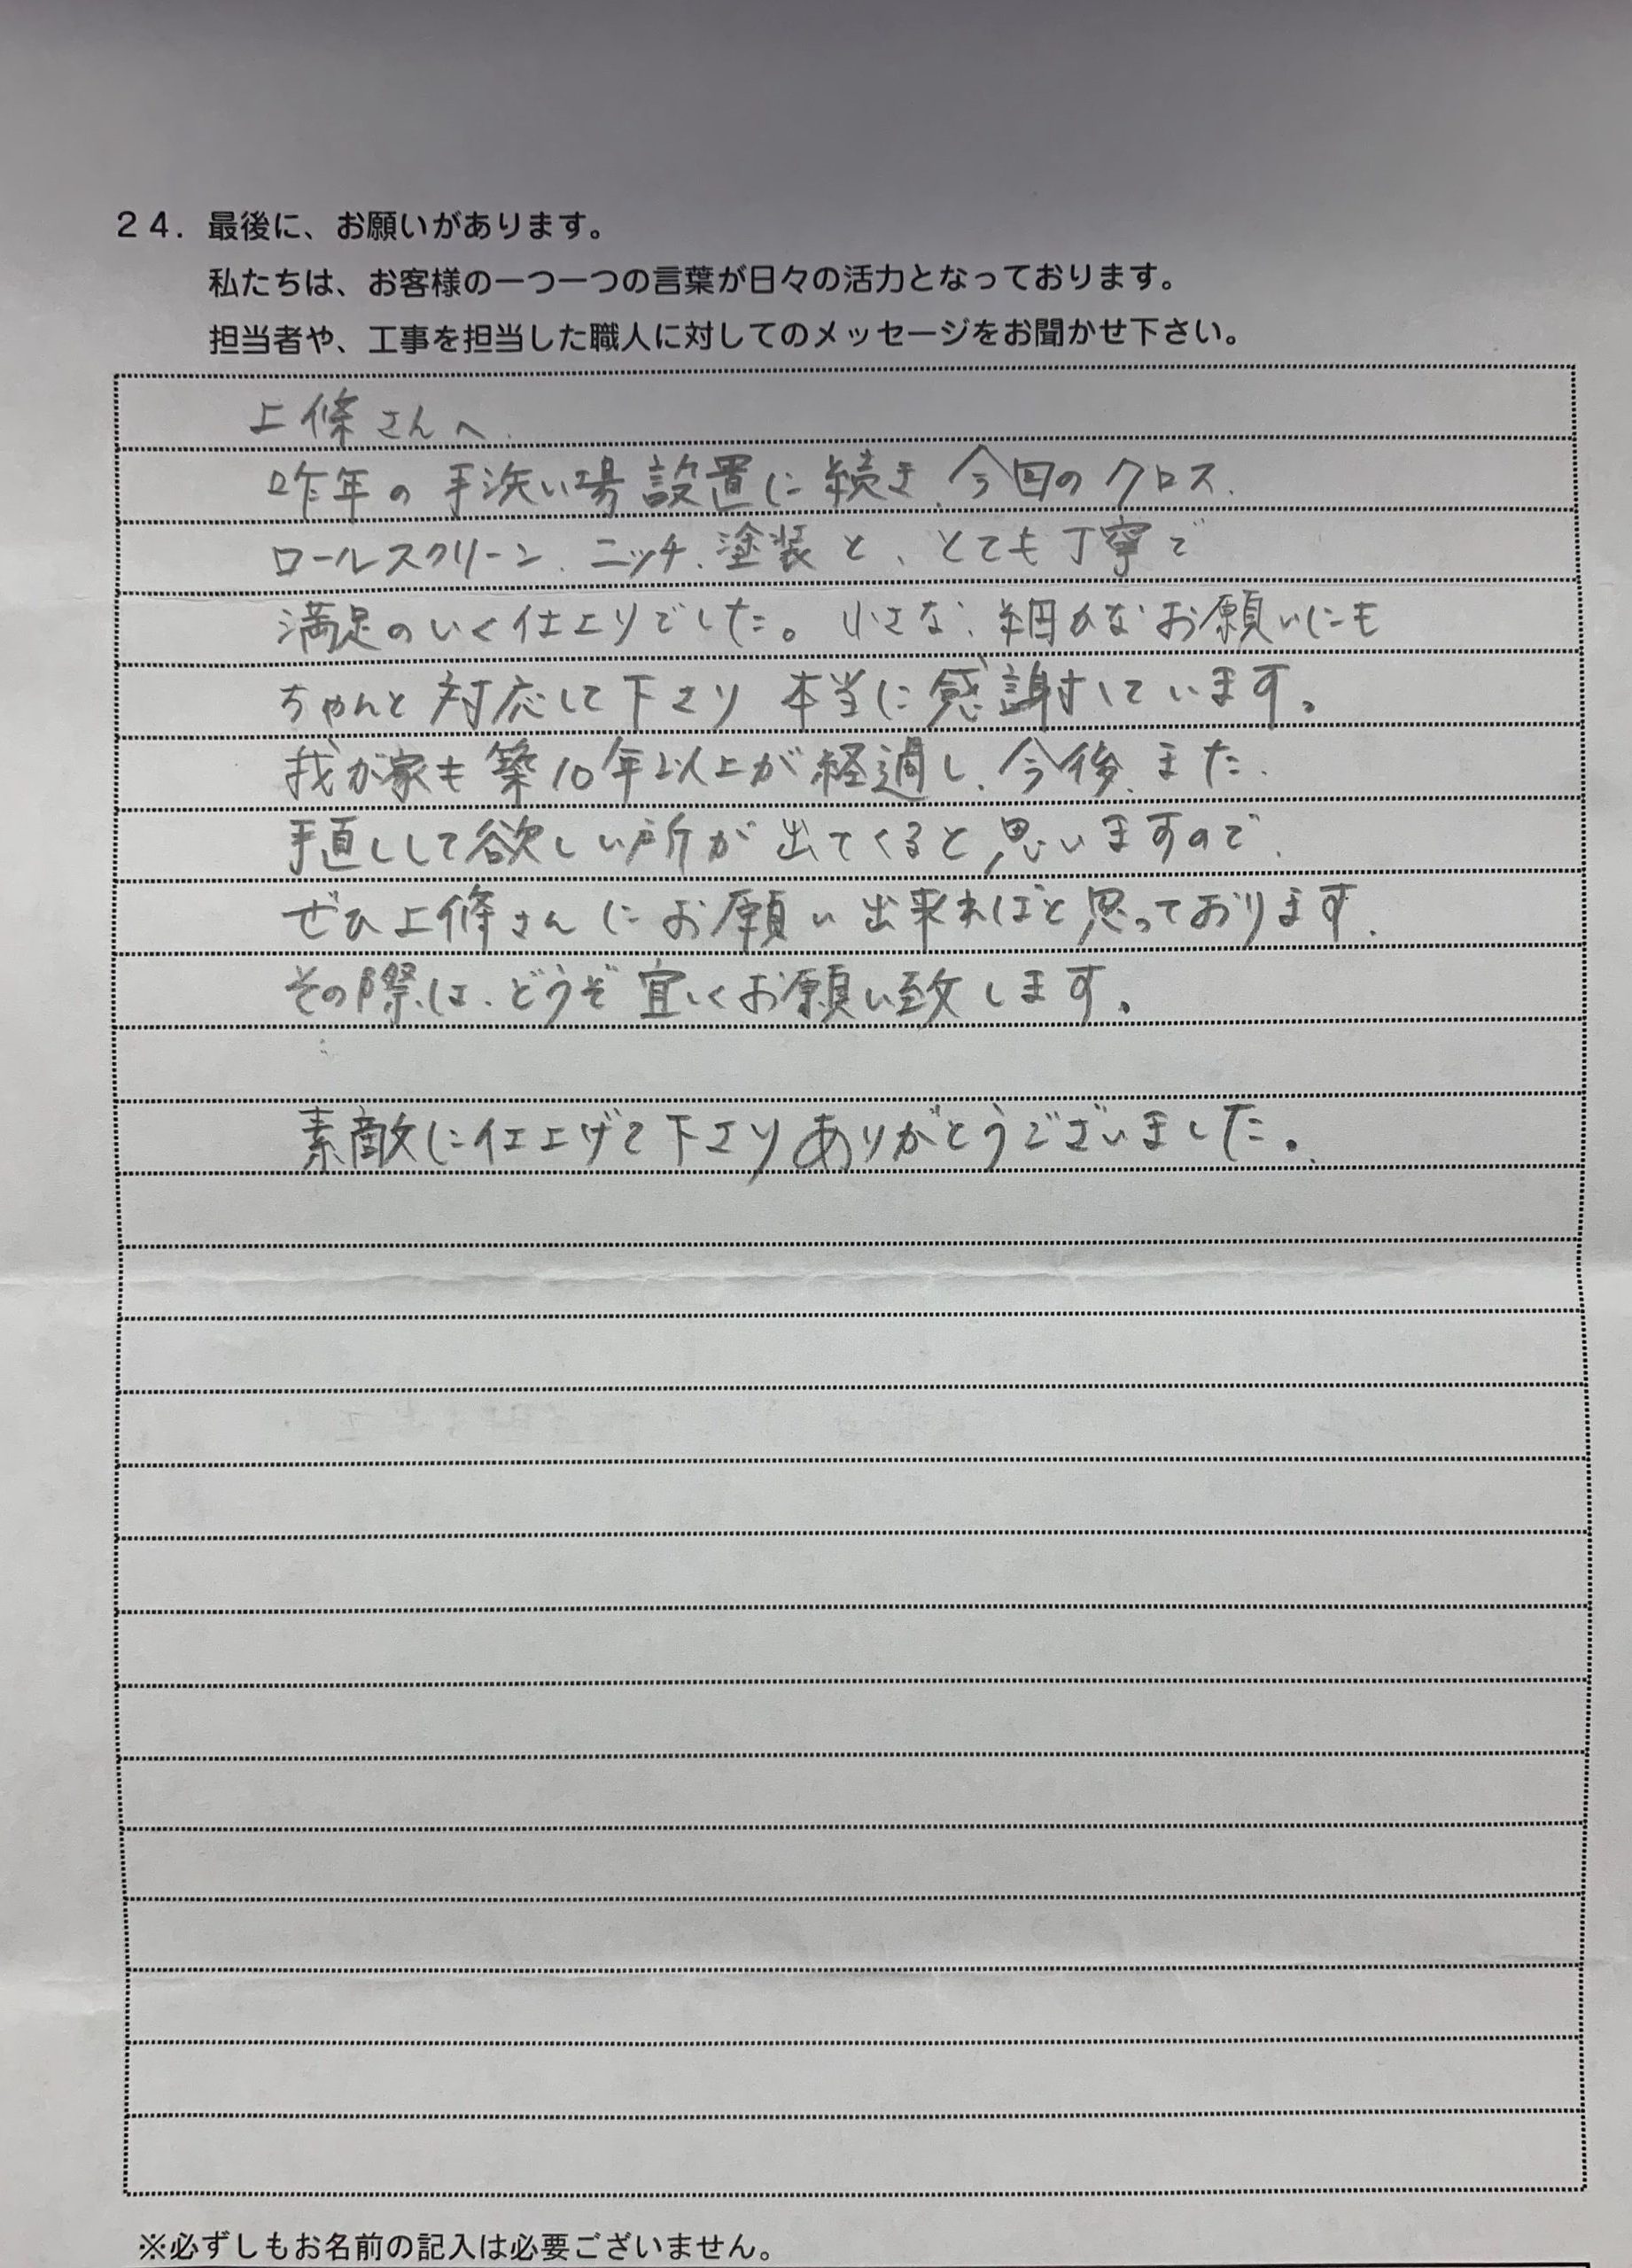 24. 最後に、お願いがあります。
私たちは、お客様の一つ一つの言葉が日々の活力となっております。
担当者や、工事を担当した職人に対してのメッセージをお聞かせ下さい。
上條さんへ.
昨年の手洗い場設置に続き、今回のクロス、
ロールスクリーン、ニッチ、塗装と、とても丁寧で
満足のいく仕上りでした。小さな、細かなお願いにも
ちゃんと対応して下さり 本当に感謝しています。
我が家も築10年以上が経過し、今後、また、
手直しして欲しい所が出てくると思いますので、
ぜひ上條さんにお願い出来ればと思っております.
その際は、どうぞ宜しくお願い致します。
素敵に仕上げて下さりありがとうございました。
※必ずしもお名前の記入は必要ございません。